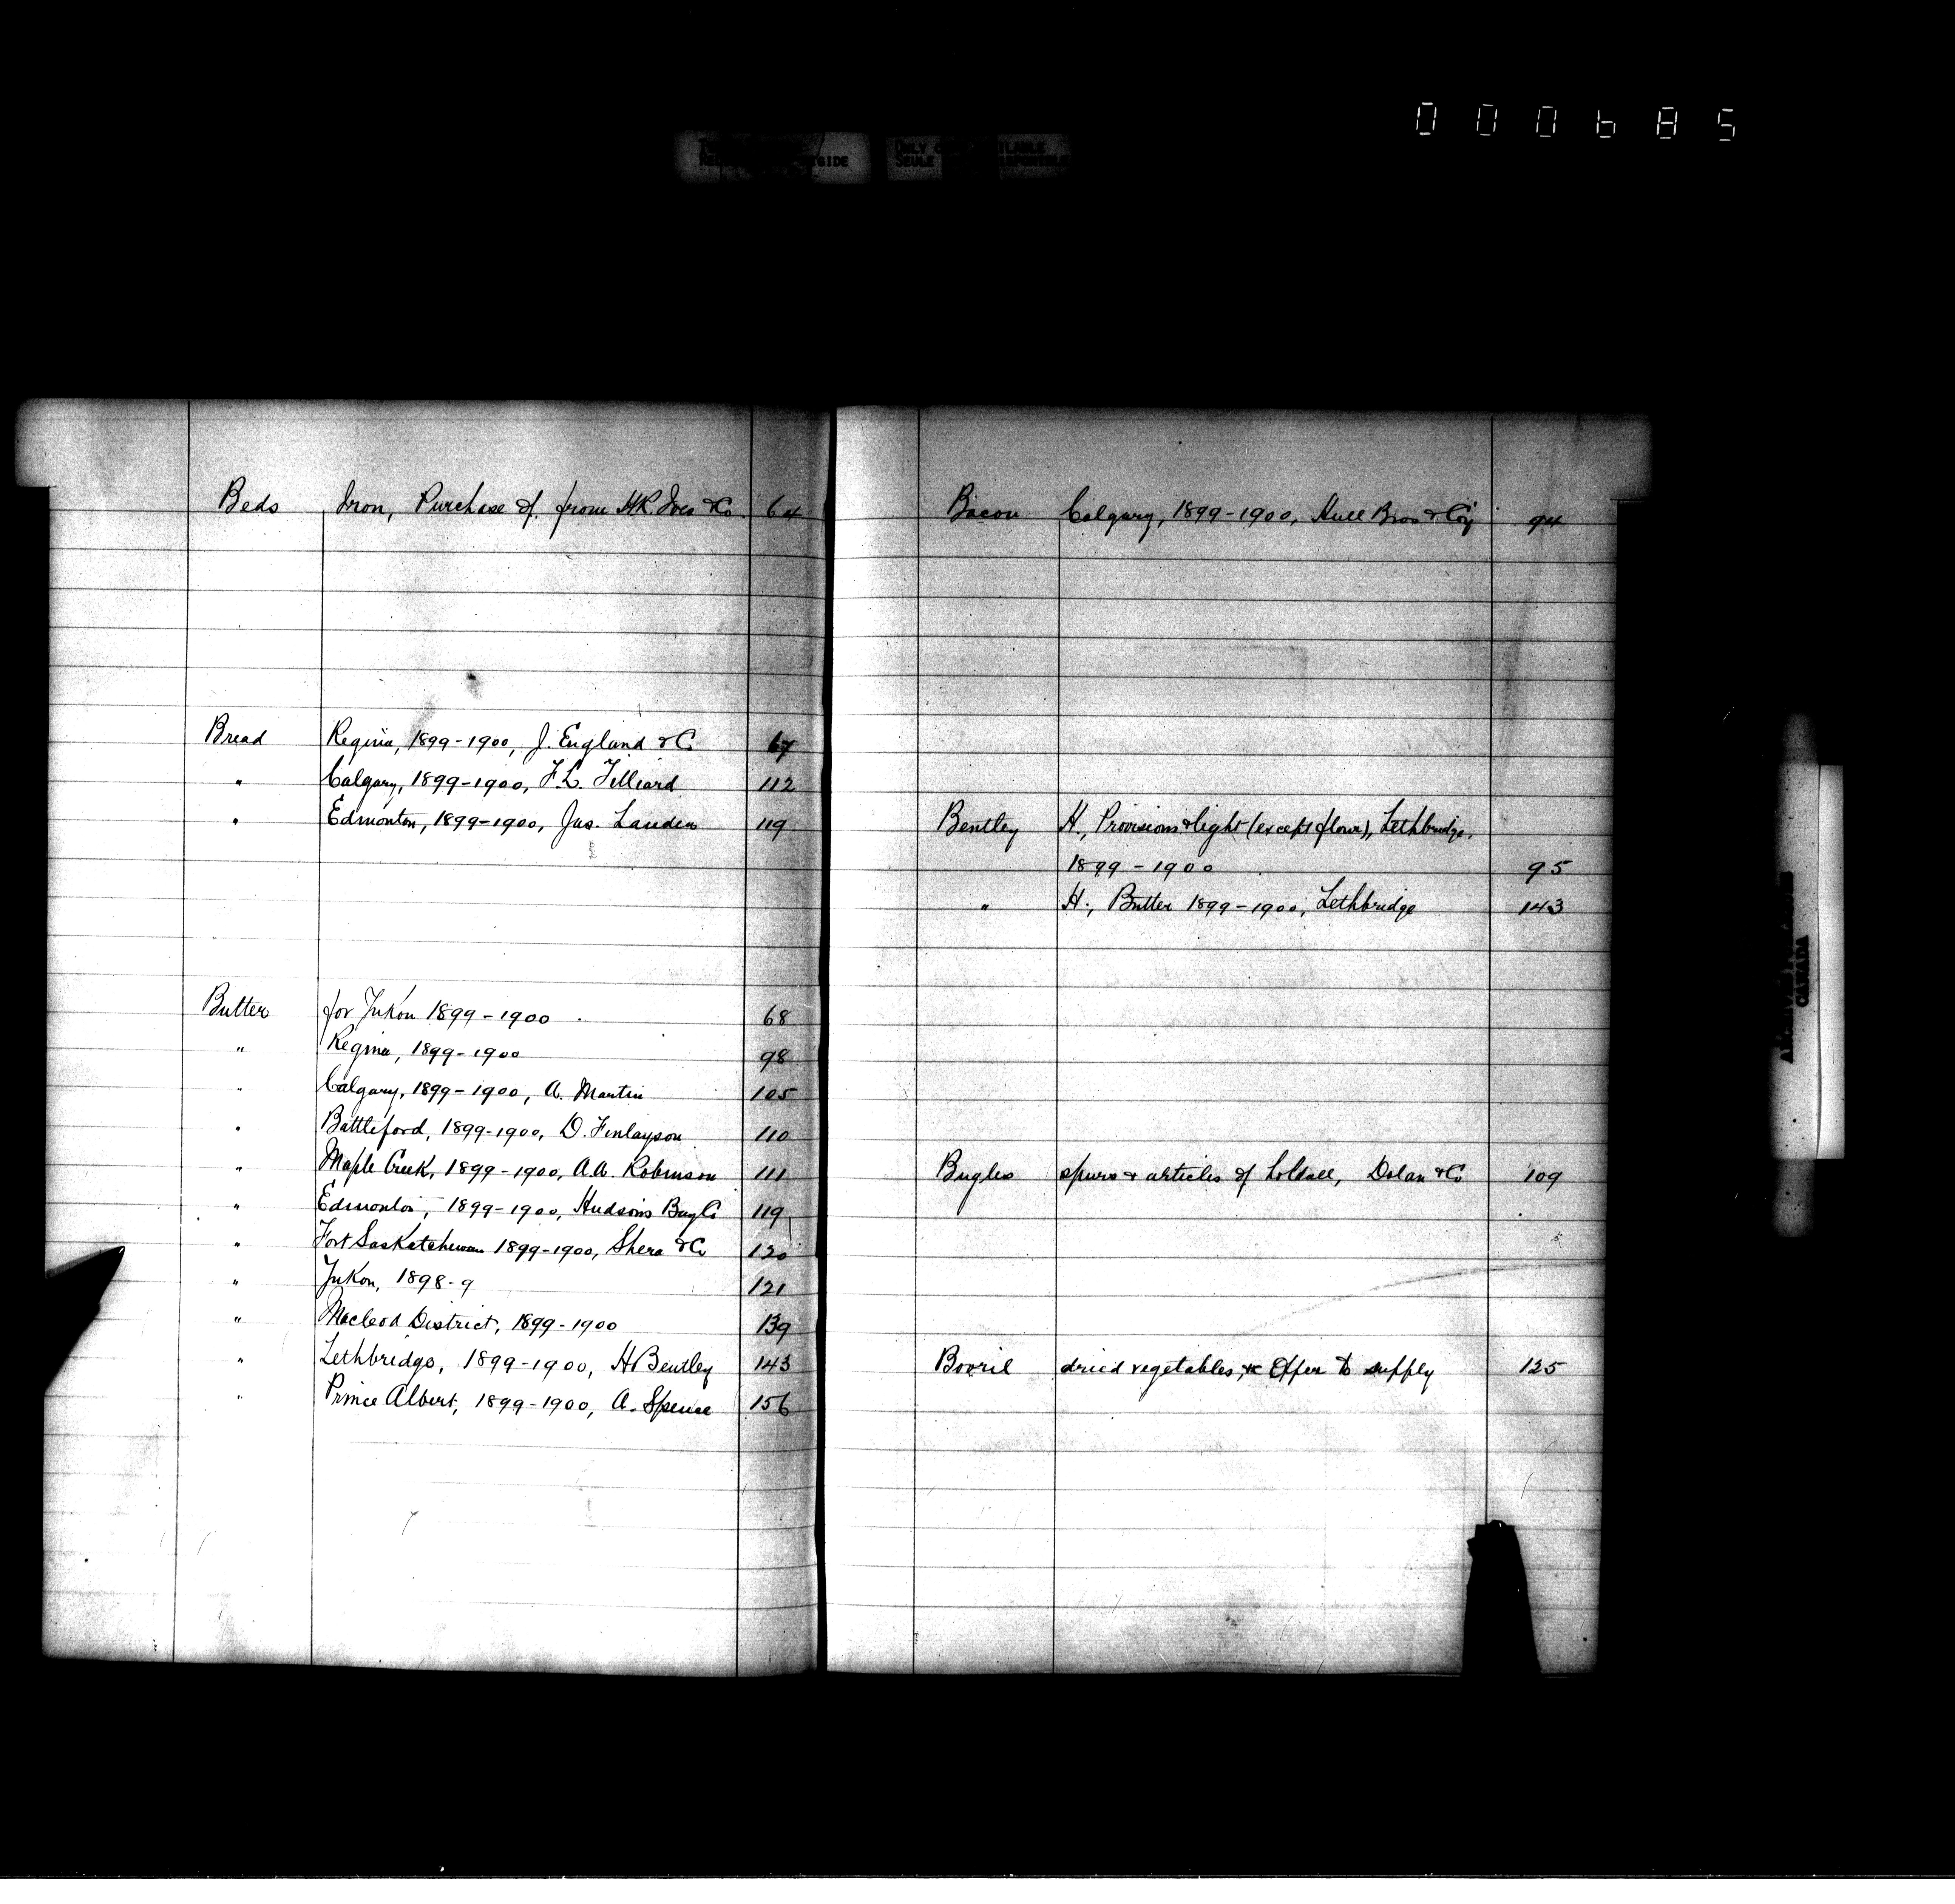 000685
ONLY
SEULE
Beds Iron, Purchase of from H.R. Ives & Co. 64
Bread Regina, 1899-1900, J. England & Co 67
" Calgary, 1899-1900, F.L. Tilliard 112
" Edmonton, 1899-1900, Jas. Lauder 119
Butter for Yukon 1899-1900 68
" Regina, 1899-1900 98
" Calgary, 1899-1900, A. Martin 105
" Battleford, 1899-1900, D. Finlayson 110
" Maple Creek, 1899-1900, A.A. Robinson 111
" Edmonton, 1899-1900, Hudson's Bay Co 119
" Fort Saskatchewan 1899-1900, Shera & Co 120
" Yukon, 1898-9 121
" Macleod District, 1899-1900 139
" Lethbridge, 1899-1900, H Bentley 143
" Prince Albert, 1899-1900, A. Spence 156
Bacon Calgary, 1899-1900, Hull Bros & Coy 94
Bentley H., Provisions & light (except flour), Lethbridge,
1899-1900 95
" H., Butter 1899-1900, Lethbridge 143
Bugles spurs & articles of Dolan & Co 109
Bovril dried vegetables, &c Offer to supply 125